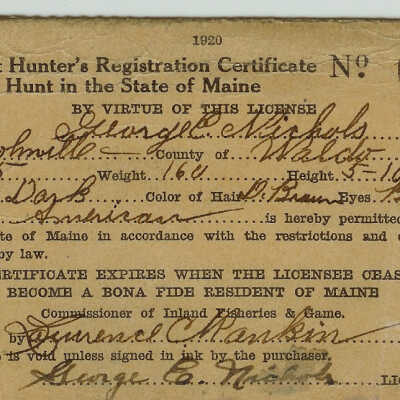 1920
Hunter's Registration Certificate No
Hunt in the State of Maine
BY VIRTUE OF THIS LICENSE
George E. Nichols
County of Waldo
Weight 160 Height 5-10
Dark Color of Hair D. Brown Eyes
American is hereby permitted
te of Maine in accordance with the restrictions and
by law.
CERTIFICATE EXPIRES WHEN THE LICENSEE CEAS
BECOME A BONA FIDE RESIDENT OF MAINE
Commissioner of Inland Fisheries & Game.
by Lawrence C Rankin
e is void unless signed in ink by the purchaser.
George E. Nichols